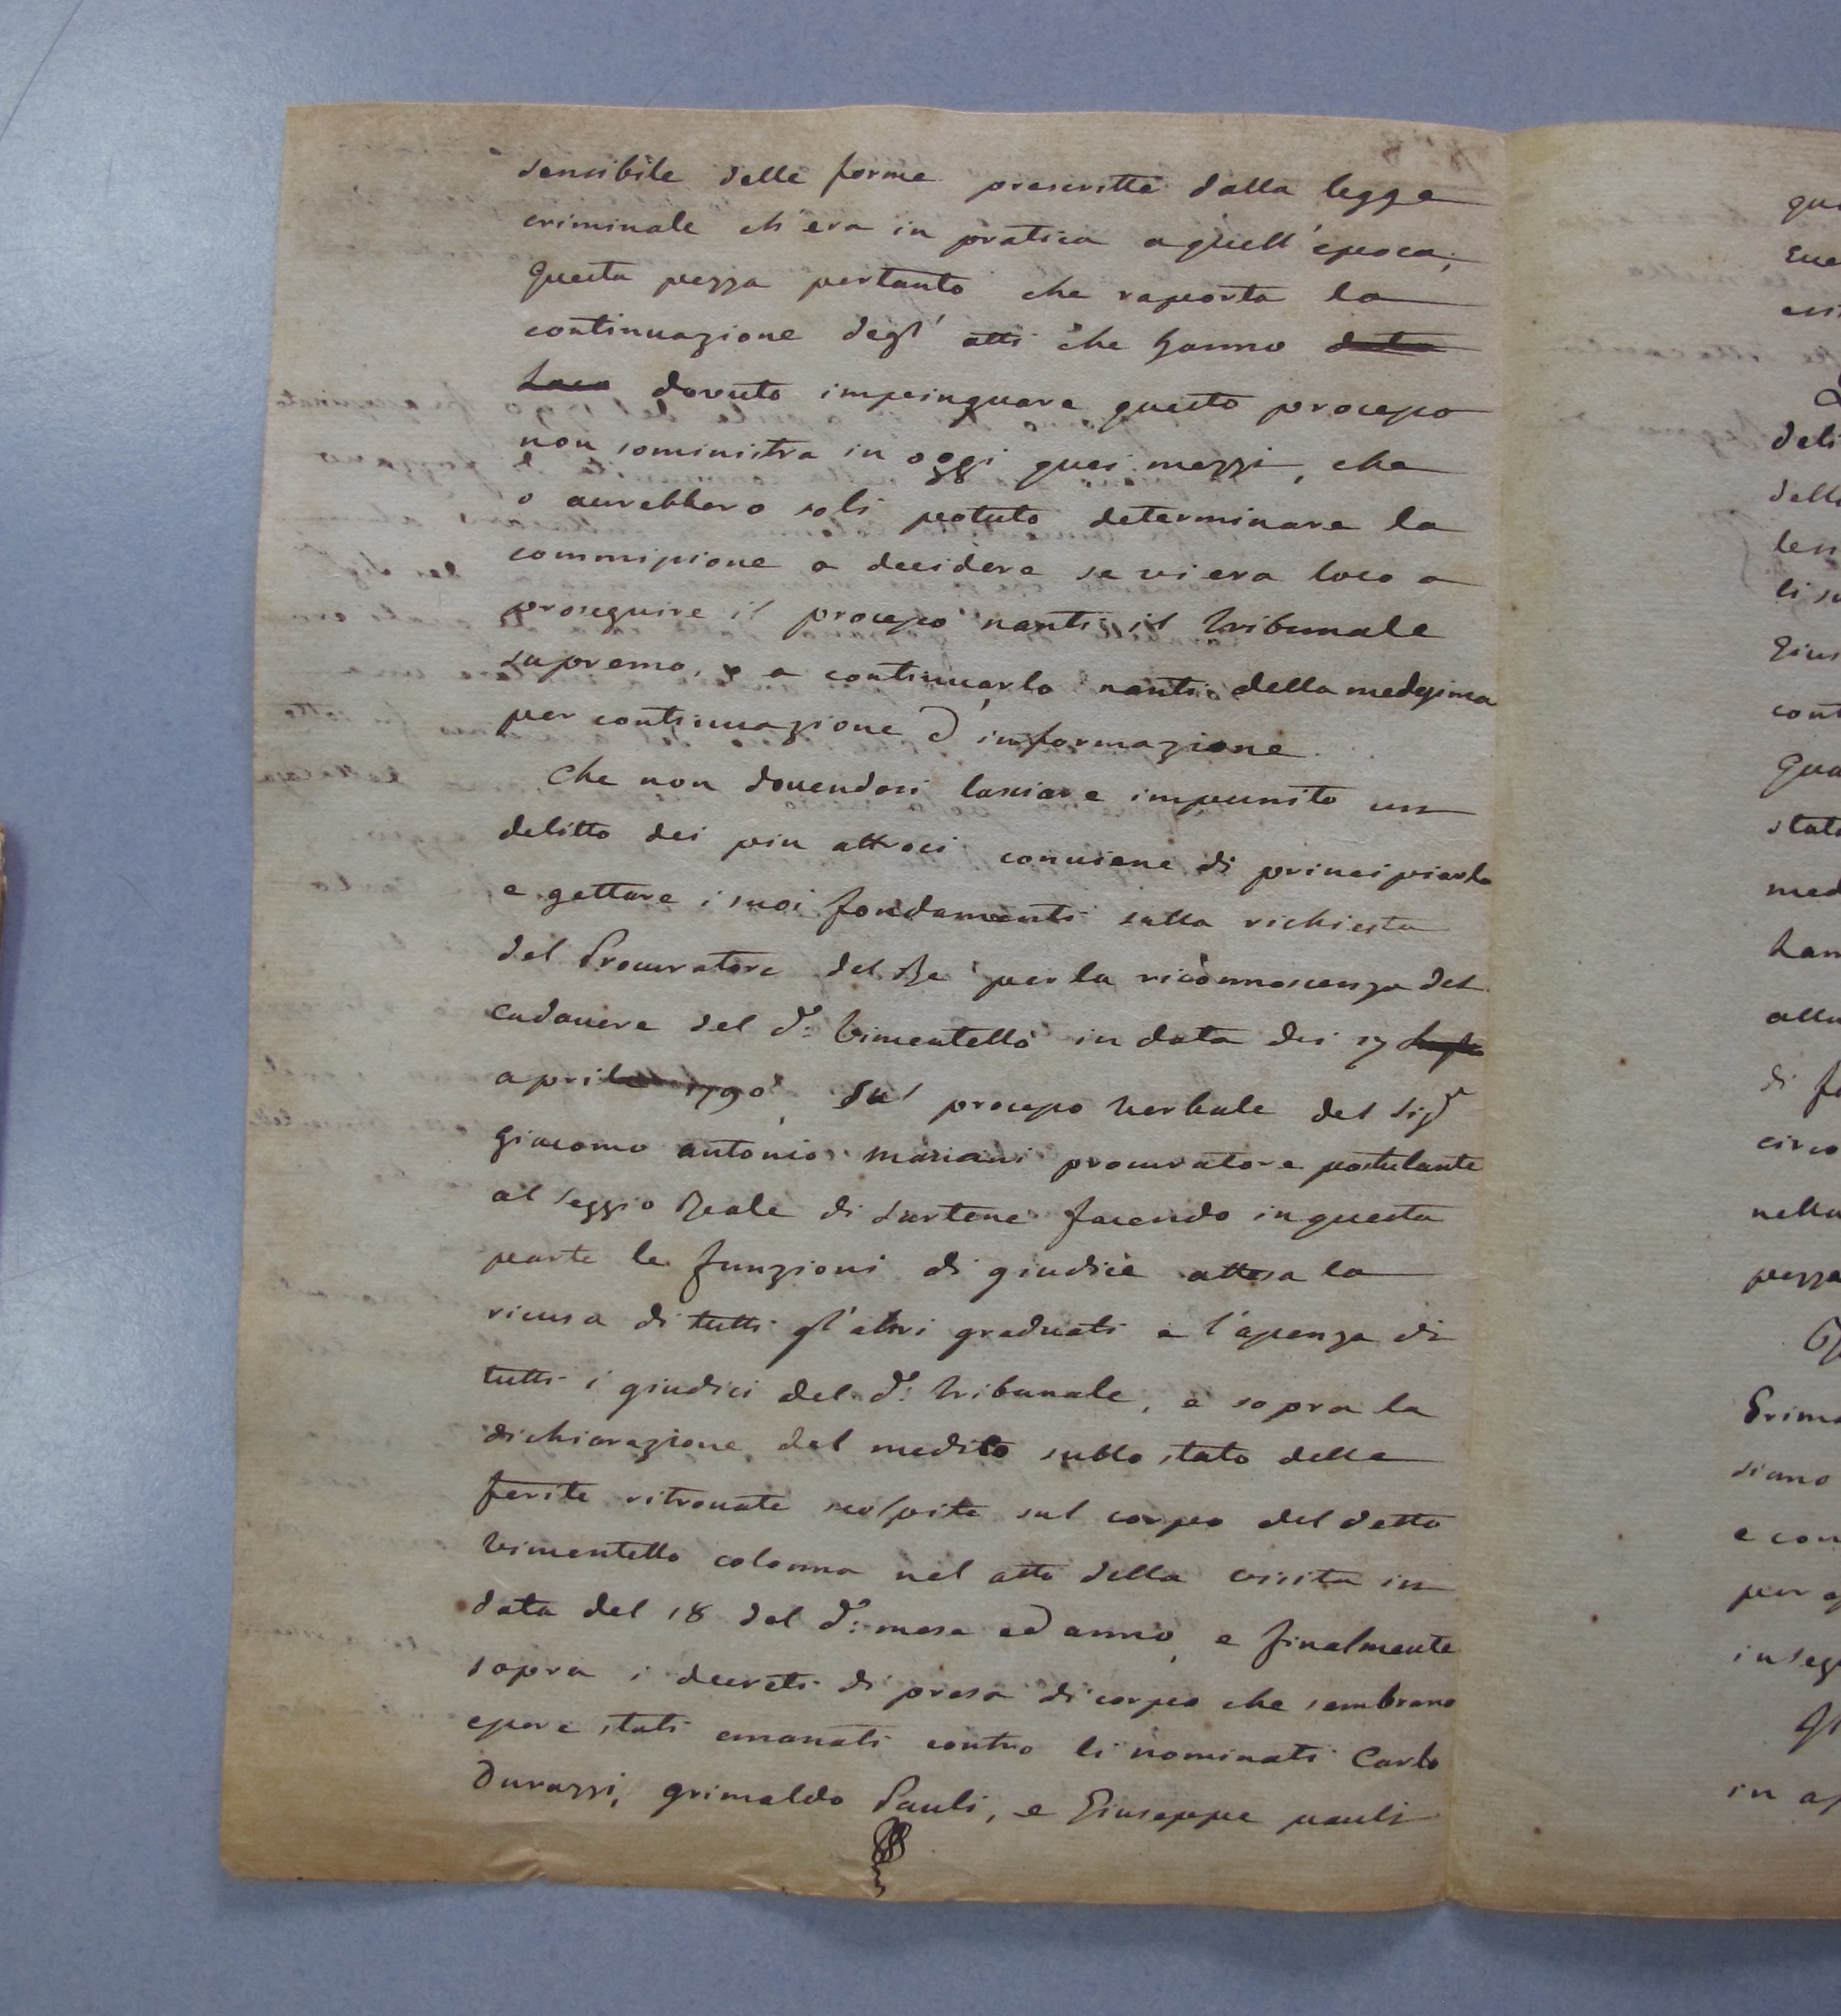 sensibile delle forme prescritte dalla legge
criminale ch'era in pratica a quell'epoca;
questa pezza pertanto che raporta la
continuazione degl' atti che hanno dato
loco dovuto impeinguare questo processo
non soministra in oggi quei mezzi, che
o aurebbero soli potuto determinare la
commissione a decidere se vi era loco a
proseguire il processo nanti il tribunale
supremo, o a continuarlo nanti della medesima
per continuazione d'informazione
Che non dovendosi lasciare impunito un
delitto dei piu attroci conviene di principiarlo
e gettare i suoi fondamenti sulla richiesta
del Procuratore del Re per la riconnoscenza del
cadavere del d.º Vimentello in data dei 17
aprile 1790, sul processo verbale del Sigr
Giacomo antonio Mariani procuratore postulante
al seggio Reale di Sartene facendo in questa
parte le funzioni di giudice attesa la
ricusa di tutti gl'altri graduati e l'assenza di
tutti i giudici del d.º tribunale, e sopra la
dichiarazione del medico sullo stato delle
ferite ritrovate scolpite sul corpo del detto
Vimentello colonna nel atto della visita in
data del 18 del d.º mese ed anno, e finalmente
sopra i decreti di presa di corpo che sembrano
essere stati emanati contro li nominati Carlo
Durazzi, grimaldo Pauli, e Giuseppe pauli